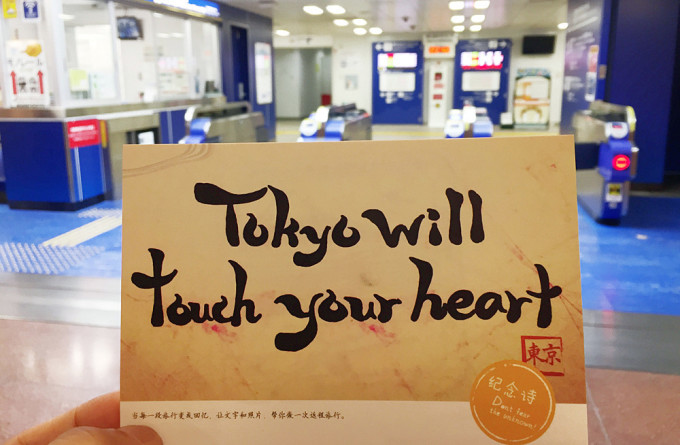 Tokyo will
touch your heart
東京
纪念诗
Dont fear
the unknown!
当每一段旅行变成回忆，让文字和照片，替你做一次远程旅行。